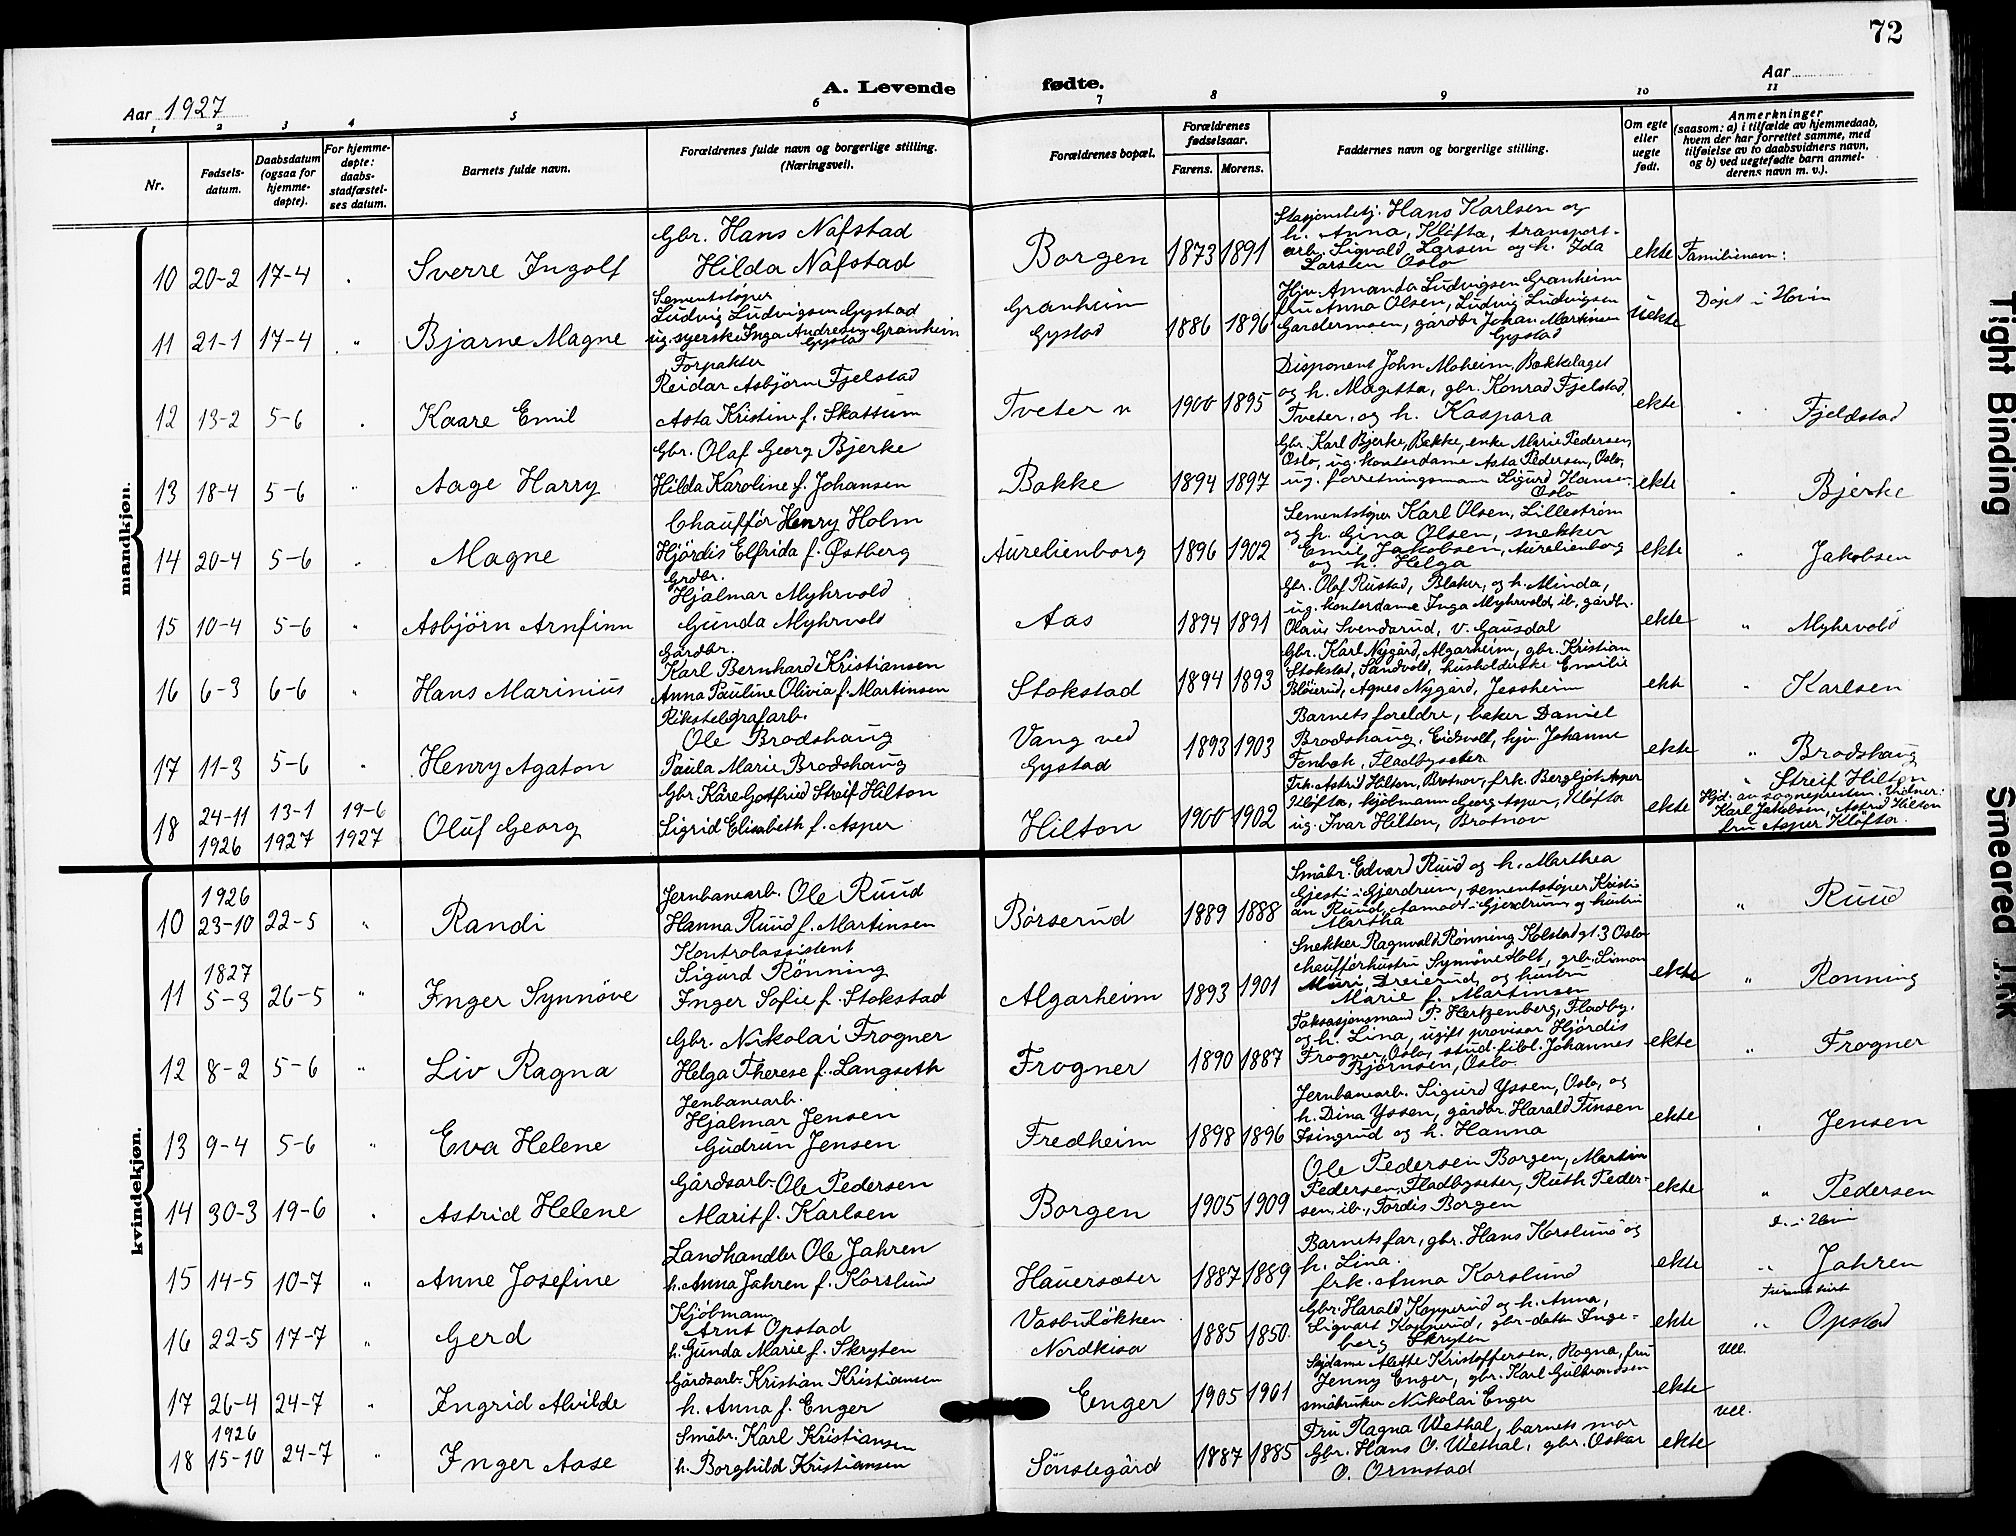 72
A. Levende fødte.
Aar 1927
Aar
1 2 3 4 5 6 7 8 9 10 11
Nr.
Fødsels-
datum.
Daabsdatum
(ogsaa for
hjemme-
døpte).
For hjemme-
døpte:
daabs-
stadfæstel-
ses datum.
Barnets fulde navn.
Forældrenes fulde navn og borgerlige stilling.
(Næringsvei).
Forældrenes bopæl.
Forældrenes
fødselsaar.
Farens. Morens.
Faddernes navn og borgerlige stilling.
Om egte
eller
uegte
født.
Anmerkninger
(saasom: a) i tilfælde av hjemmedaab,
hvem der har forrettet samme, med
tilføielse av to daabsvidners navn,
og b) ved uegtefødte barn anmel-
derens navn m. v.).
mandkjøn.
10 20-2 17-4 Sverre Ingolf
Gbr. Hans Nafstad
Hilda Nafstad
Borgen 1873 1891
Stasjonsbetj. Hans Karlsen og
h. Anna, Kløfta, transport-
arb. Sigvald Larsen og h. Ida
Larsen Oslo
ekte Familienavn:
11 21-1 17-4 " Bjarne Magne
Sementstøper
Ludvig Ludvigsen Gystad
ug. syerske Inga Andresen Granheim
Gystad
Granheim
Gystad
1886 1896
Hjv. Amanda Ludvigsen Granheim
fru Anna Olsen, Ludvig Ludvigsen
Gardermoen, gårdbr Johan Martinsen
Gystad
uekte Døpt i Hovin
12 13-2 5-6 Kaare Emil
Forpakter
Reidar Asbjörn Fjelstad
Asta Kristine f. Skattum
Tveter n 1900 1895
Disponent John Moheim, Bækkelaget
og h. Magetta, gbr. Konrad Fjelstad,
Tveter, og h. Kaspara
ekte " Fjeldstad
13 18-4 5-6 " Aage Harry
Gbr. Olaf Georg Bjerke
Hilda Karoline f. Johansen
Bakke 1894 1897
Gbr. Karl Bjerke, Bakke, enke Marie Pedersen,
Oslo, ug. kontordame Asta Pedersen, Oslo,
ug. forretningsmann Sigurd Hansen
Oslo
ekte " Bjerke
14 20-4 5-6 " Magne
Chaufför Henry Holm
Hjördis Elfrida f. Østberg
Aurelienborg 1896 1902
Sementstøper Karl Olsen, Lillestrøm
og h. Gina Olsen, snekker
Emil Jakobsen, Aurelienborg
og h. Helga
ekte " Jakobsen
15 10-4 5-6 " Asbjörn Arnfinn
Grdbr.
Hjalmar Myhrvold
Gunda Myhrvold
Aas 1894 1891
Gbr. Olaf Rustad, Blaker, og h. Minda,
ug. kontordame Inga Myhrvold, ib, gårdbr.
Olaus Svendsrud, V. Gausdal
ekte " Myhrvold
16 6-3 6-6 " Hans Marinius
Gårdbr.
Karl Bernhard Kristiansen
Anna Pauline Olivia f. Martinsen
Stokstad 1894 1893
Gbr. Karl Nygård, Algarheim, gbr. Kristian
Stokstad, Sandvold, husholderske Emilie
Bløierud, Agnes Nygård, Jessheim
ekte " Karlsen
17 11-3 5-6 " Henry Agaton
Rikstelegrafarb.
Ole Brodshaug
Paula Marie Brodshaug
Vang ved
Gystad
1893 1903
Barnets foreldre, baker Daniel
Brodshaug, Eidsvoll, hjv. Johanne
Fenbæk, Fladbyseter
ekte " Brodshaug
18 24-11 1926 13-1 1927 19-6 1927 Oluf Georg
Gbr. Kåre Gotfried Streif Hilton
Sigrid Elisabeth f. Asper
Hilton 1900 1902
Frk. Astrid Hilton, Brotnov, frk. Bergljot Asper
Kløfta, kjøbmann Georg Asper, Kløfta
ug. Ivar Hilton, Brotnov
ekte " Streif Hilton
Hjd. av sognepresten. Vidner:
Karl Jakobsen, Astrid Hilton
fru Asper Kløfta.
kvindekjøn.
10 1926 23-10 22-5 " Randi
Jernbanearb. Ole Ruud
Hanna Ruud f. Martinsen
Børserud 1889 1888
Småbr. Edvard Ruud og h. Marthea
Gjesti i Gjerdrum, sementstøper Kristi-
an Ruud, Aamodt i Gjerdrum og hustru
Martha
" Ruud
11 1827 5-3 26-5 " Inger Synnöve
Kontrolassistent
Sigurd Rönning
Inger Sofie f. Stokstad
Algarheim 1893 1901
Snekker Ragnvald Rønning Kolstadgt. 3 Oslo
chaufførhustru Synnøve Holt, grb. Simon
Muri, Dreierud, og hustru
Marie f. Martinsen
ekte " Ronning
12 8-2 5-6 " Liv Ragna
Gbr. Nikolai Frogner
Helga Therese f. Langseth
Frogner 1890 1887
Taksasjonsmand P. Hertzenberg, Fladby,
og h. Lina, ugift provisor Hjördis
Frogner, Oslo, stud. filol. Johannes
Bjørnsen, Oslo.
ekte " Frogner
13 9-4 5-6 " Eva Helene
Jenbanearb.
Hjalmar Jensen
Gudrun Jensen
Fredheim 1898 1896
Jernbanearb. Sigurd Yssen, Oslo, og
h. Dina Yssen, gårdbr. Harald Finsen
Isingrud og h. Hanna
ekte " Jensen
14 30-3 19-6 Astrid Helene
Gårdsarb. Ole Pedersen
Marit f. Karlsen
Borgen 1905 1909
Ole Pedersen Borgen, Martin
Pedersen, Fladbyseter, Ruth Peder-
sen, ib., Tordis Borgen
ekte " Pedersen
15 14-5 10-7 " Anne Josefine
Landhandler Ole Jahren
h. Anna Jahren f. Korslund
Hauerseter 1887 1889
Barnets far, gbr. Hans Korslund og
h. Lina.
frk. Anna Korslund
ekte D. i Hovin
" Jahren
16 22-5 17-7 " Gerd
Kjöbmann
Arnt Opstad
h. Gunda Marie f. Skryten
Vasbulökken
Nordkisa
1885 1850.
Gbr. Harald Kopperud og h. Anna,
Sigvart Kopperud, gbr-datter Inge-
borg Skryten
ekte " Opstad
Ull.
17 26-4 24-7 " Ingrid Alvilde
Gårdsarb. Kristian Kristiansen
h. Anna f. Enger
Enger 1905 1901
Sydame Alette Kristoffersen, Ragna, fru
Jenny Enger, gbr. Karl Gulbrandsen
småbruker Nikolai Enger
ekte Ull.
18 1926 15-10 24-7 " Inger Aase
Småbr. Karl Kristiansen
h. Borghild Kristiansen
Sönstegård 1887 1885
Fru Ragna Wethal, barnets mor
Gbr. Hans O. Wethal, gbr. Oskar
O. Ormstad
ekte
Tight Binding
Smeared Ink